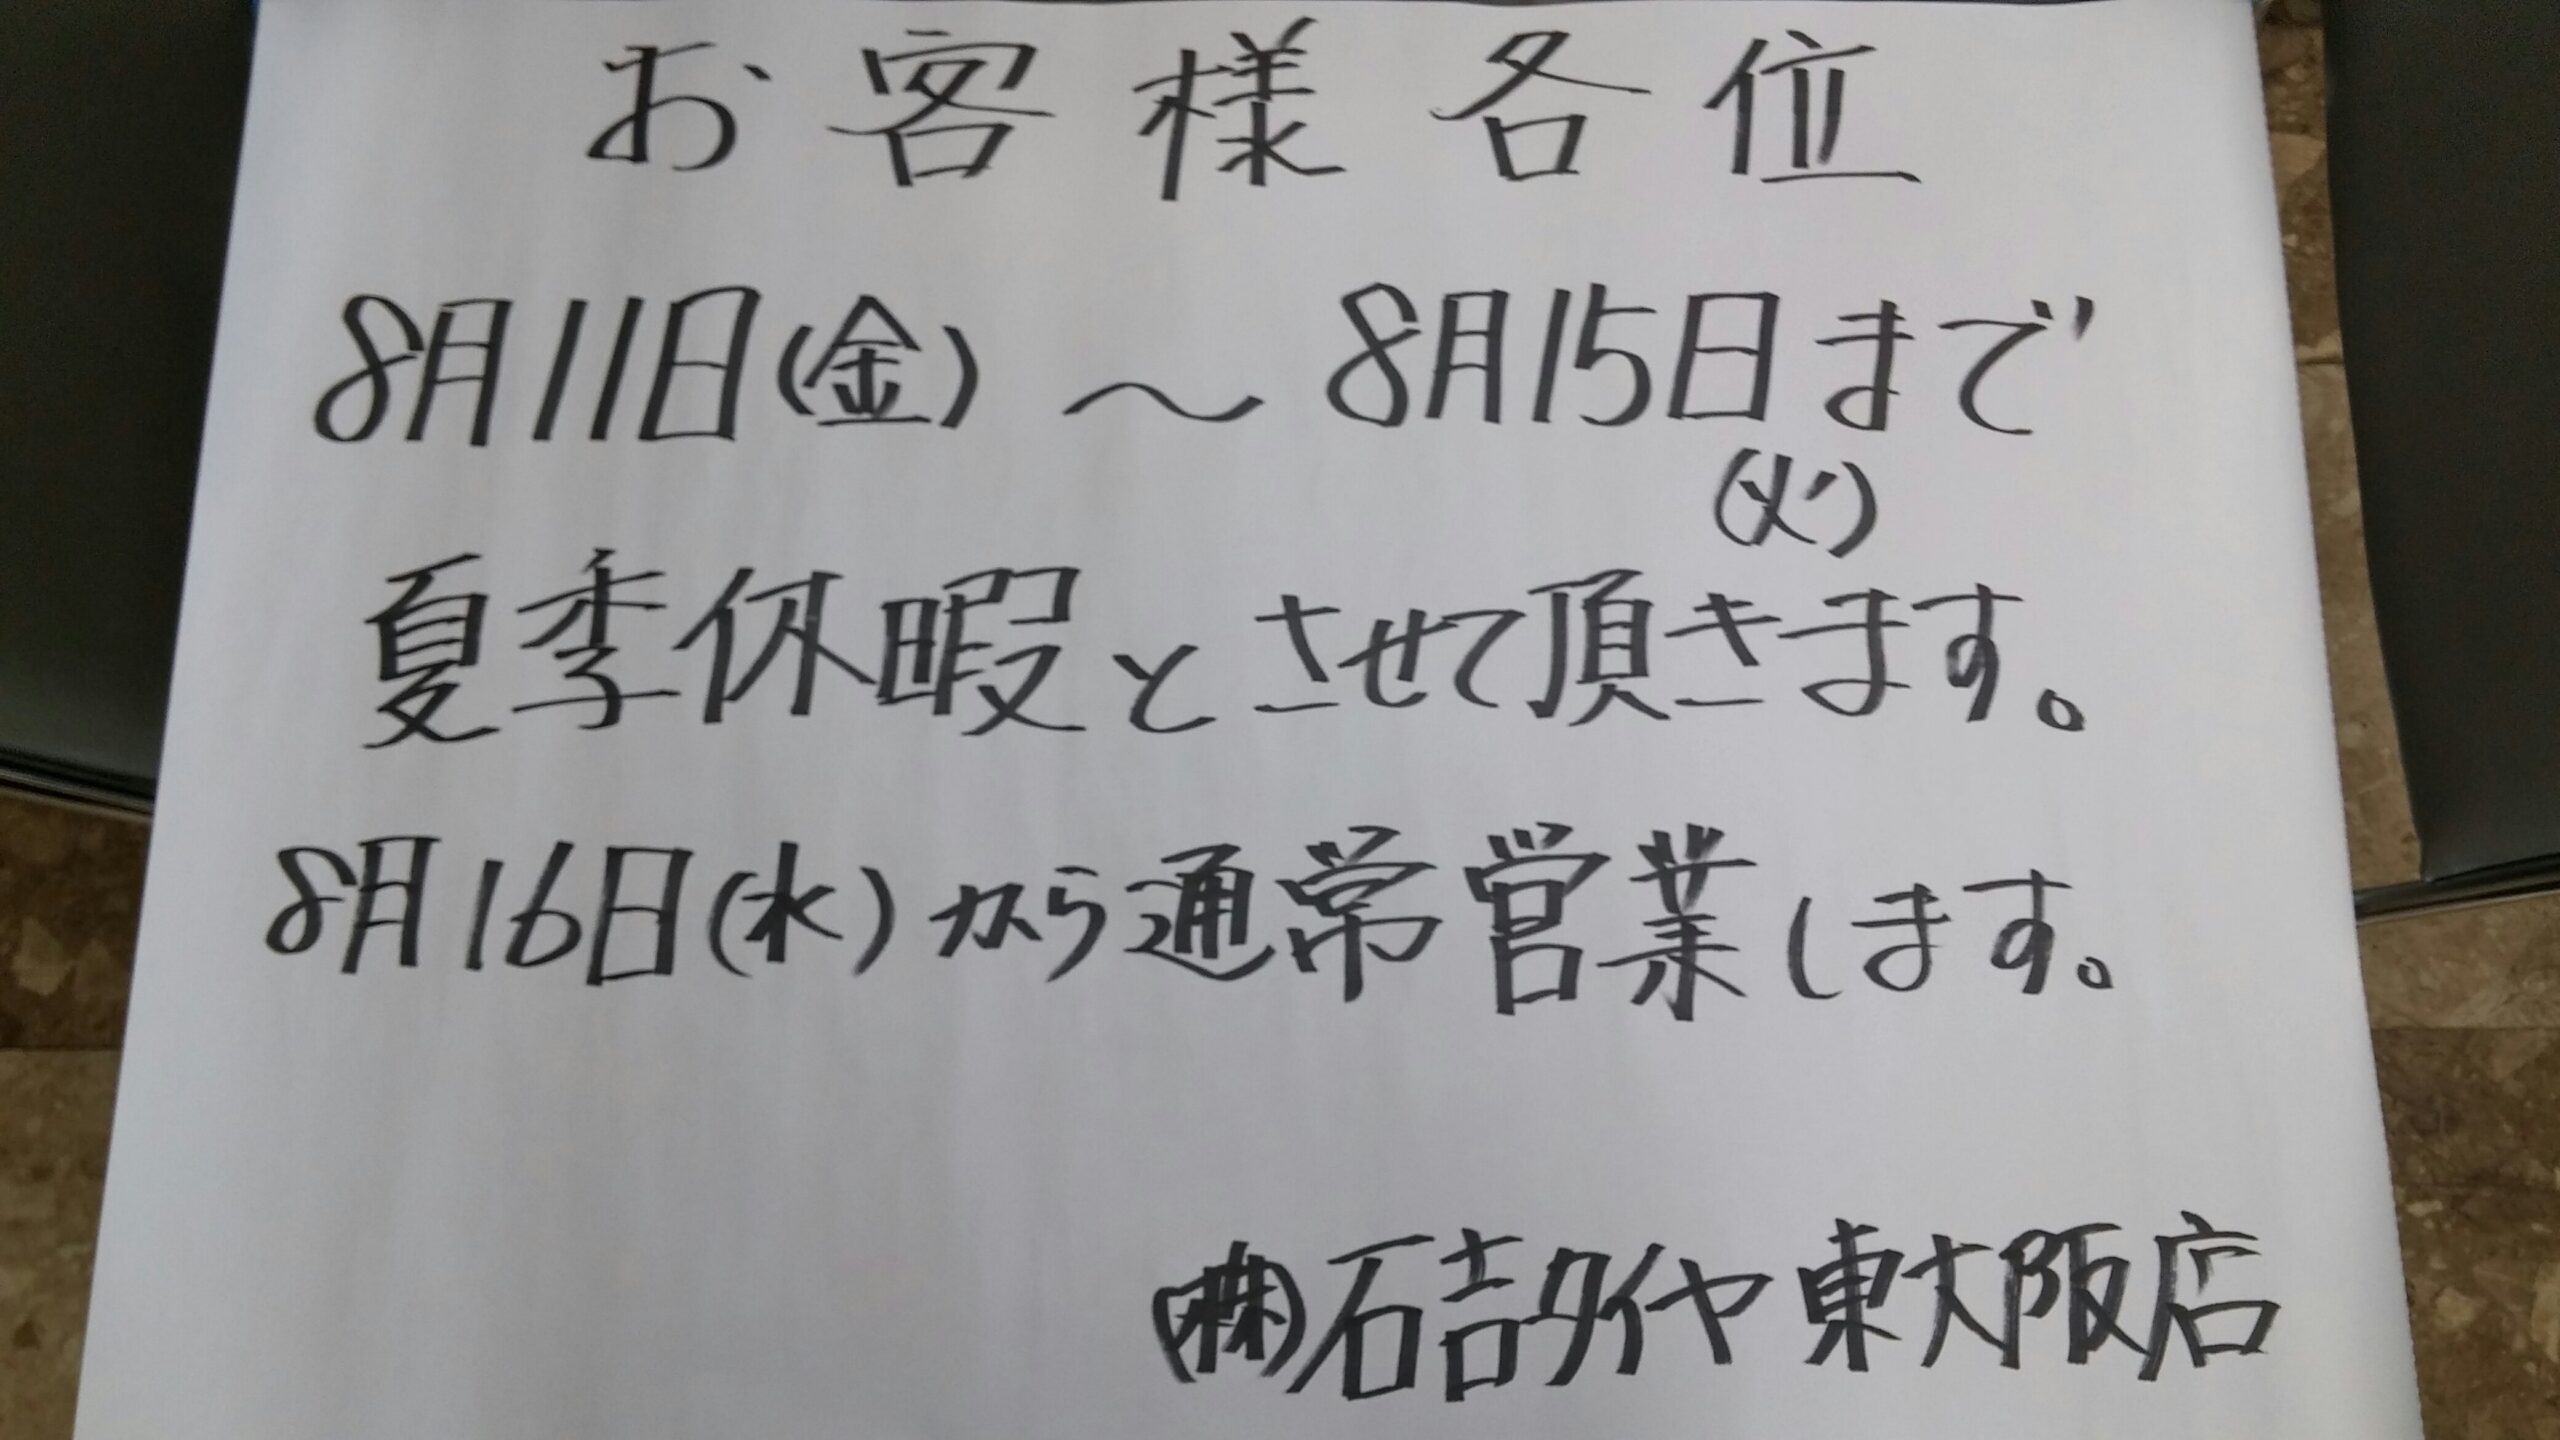 お客様各位
8月11日(金)～8月15日まで
(火)
夏季休暇とさせて頂きます。
8月16日(水)から通常営業します。
(株)石吉タイヤ東大阪店